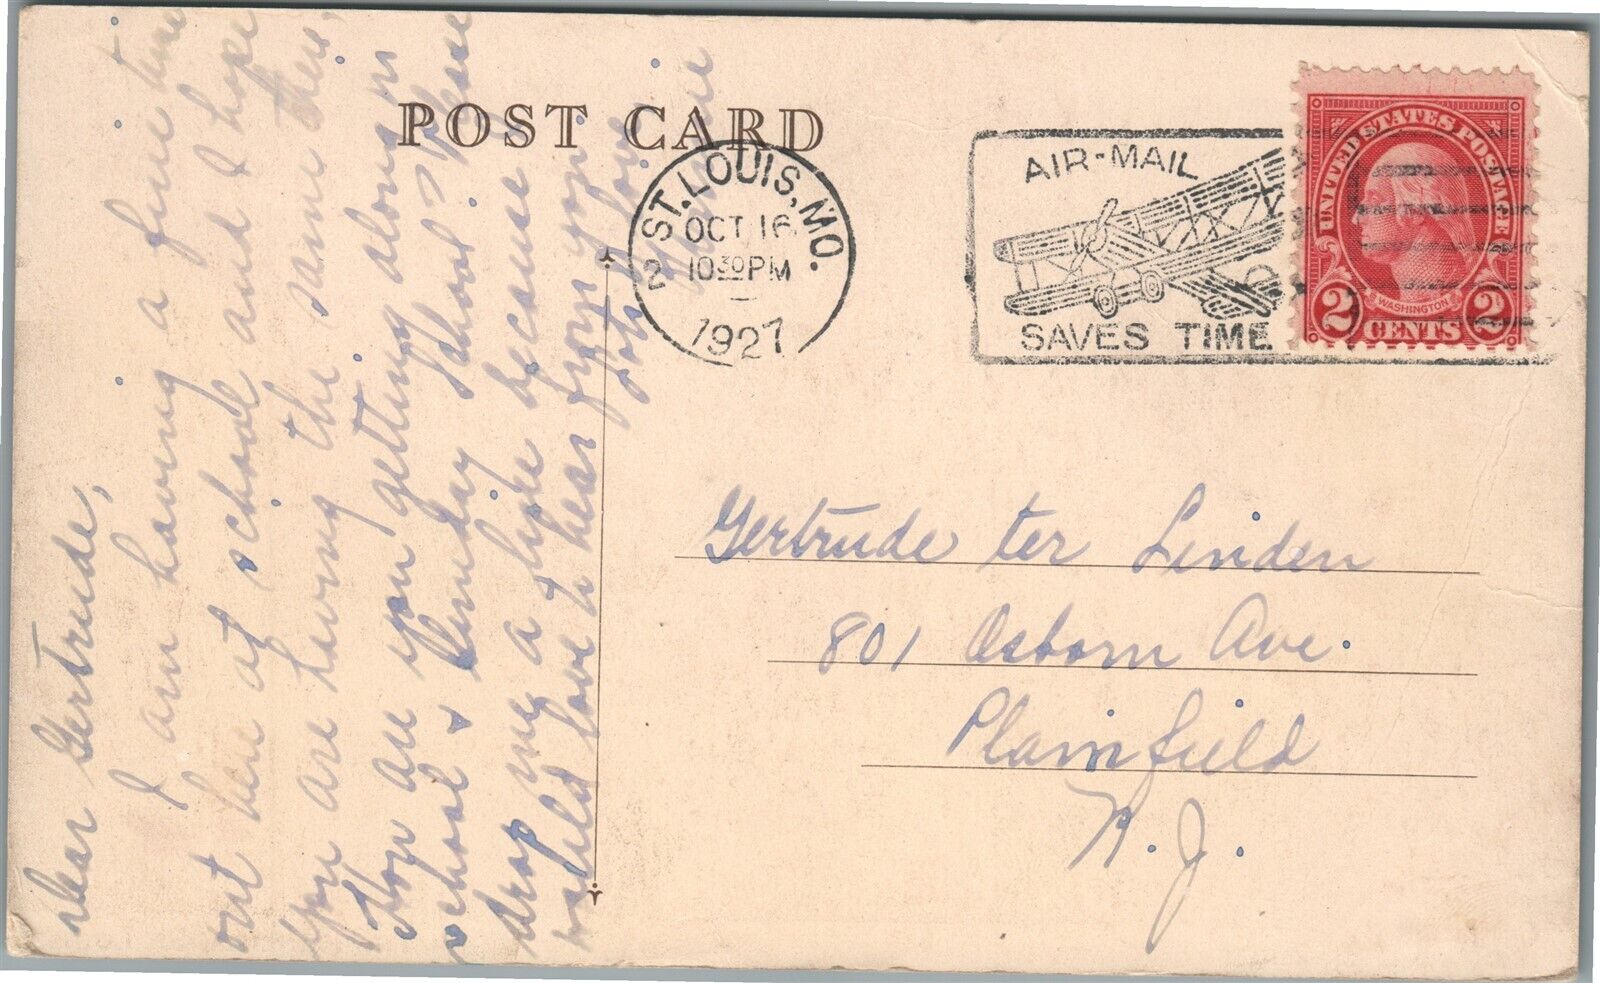 POST CARD
ST. LOUIS, MO.
2
OCT 16
10 30 PM
1927
AIR-MAIL
SAVES TIME
UNITED STATES POSTAGE
WASHINGTON
2 CENTS 2
Gertrude ter Linden
801 Osborn Ave.
Plainfield
N. J.
Dear Gertrude,
I am having a fine time
out here at school and I hope
you are having the same there,
How are you getting along in
school & Sunday School? Please
drop me a line because I
would love to hear from you
Lots love